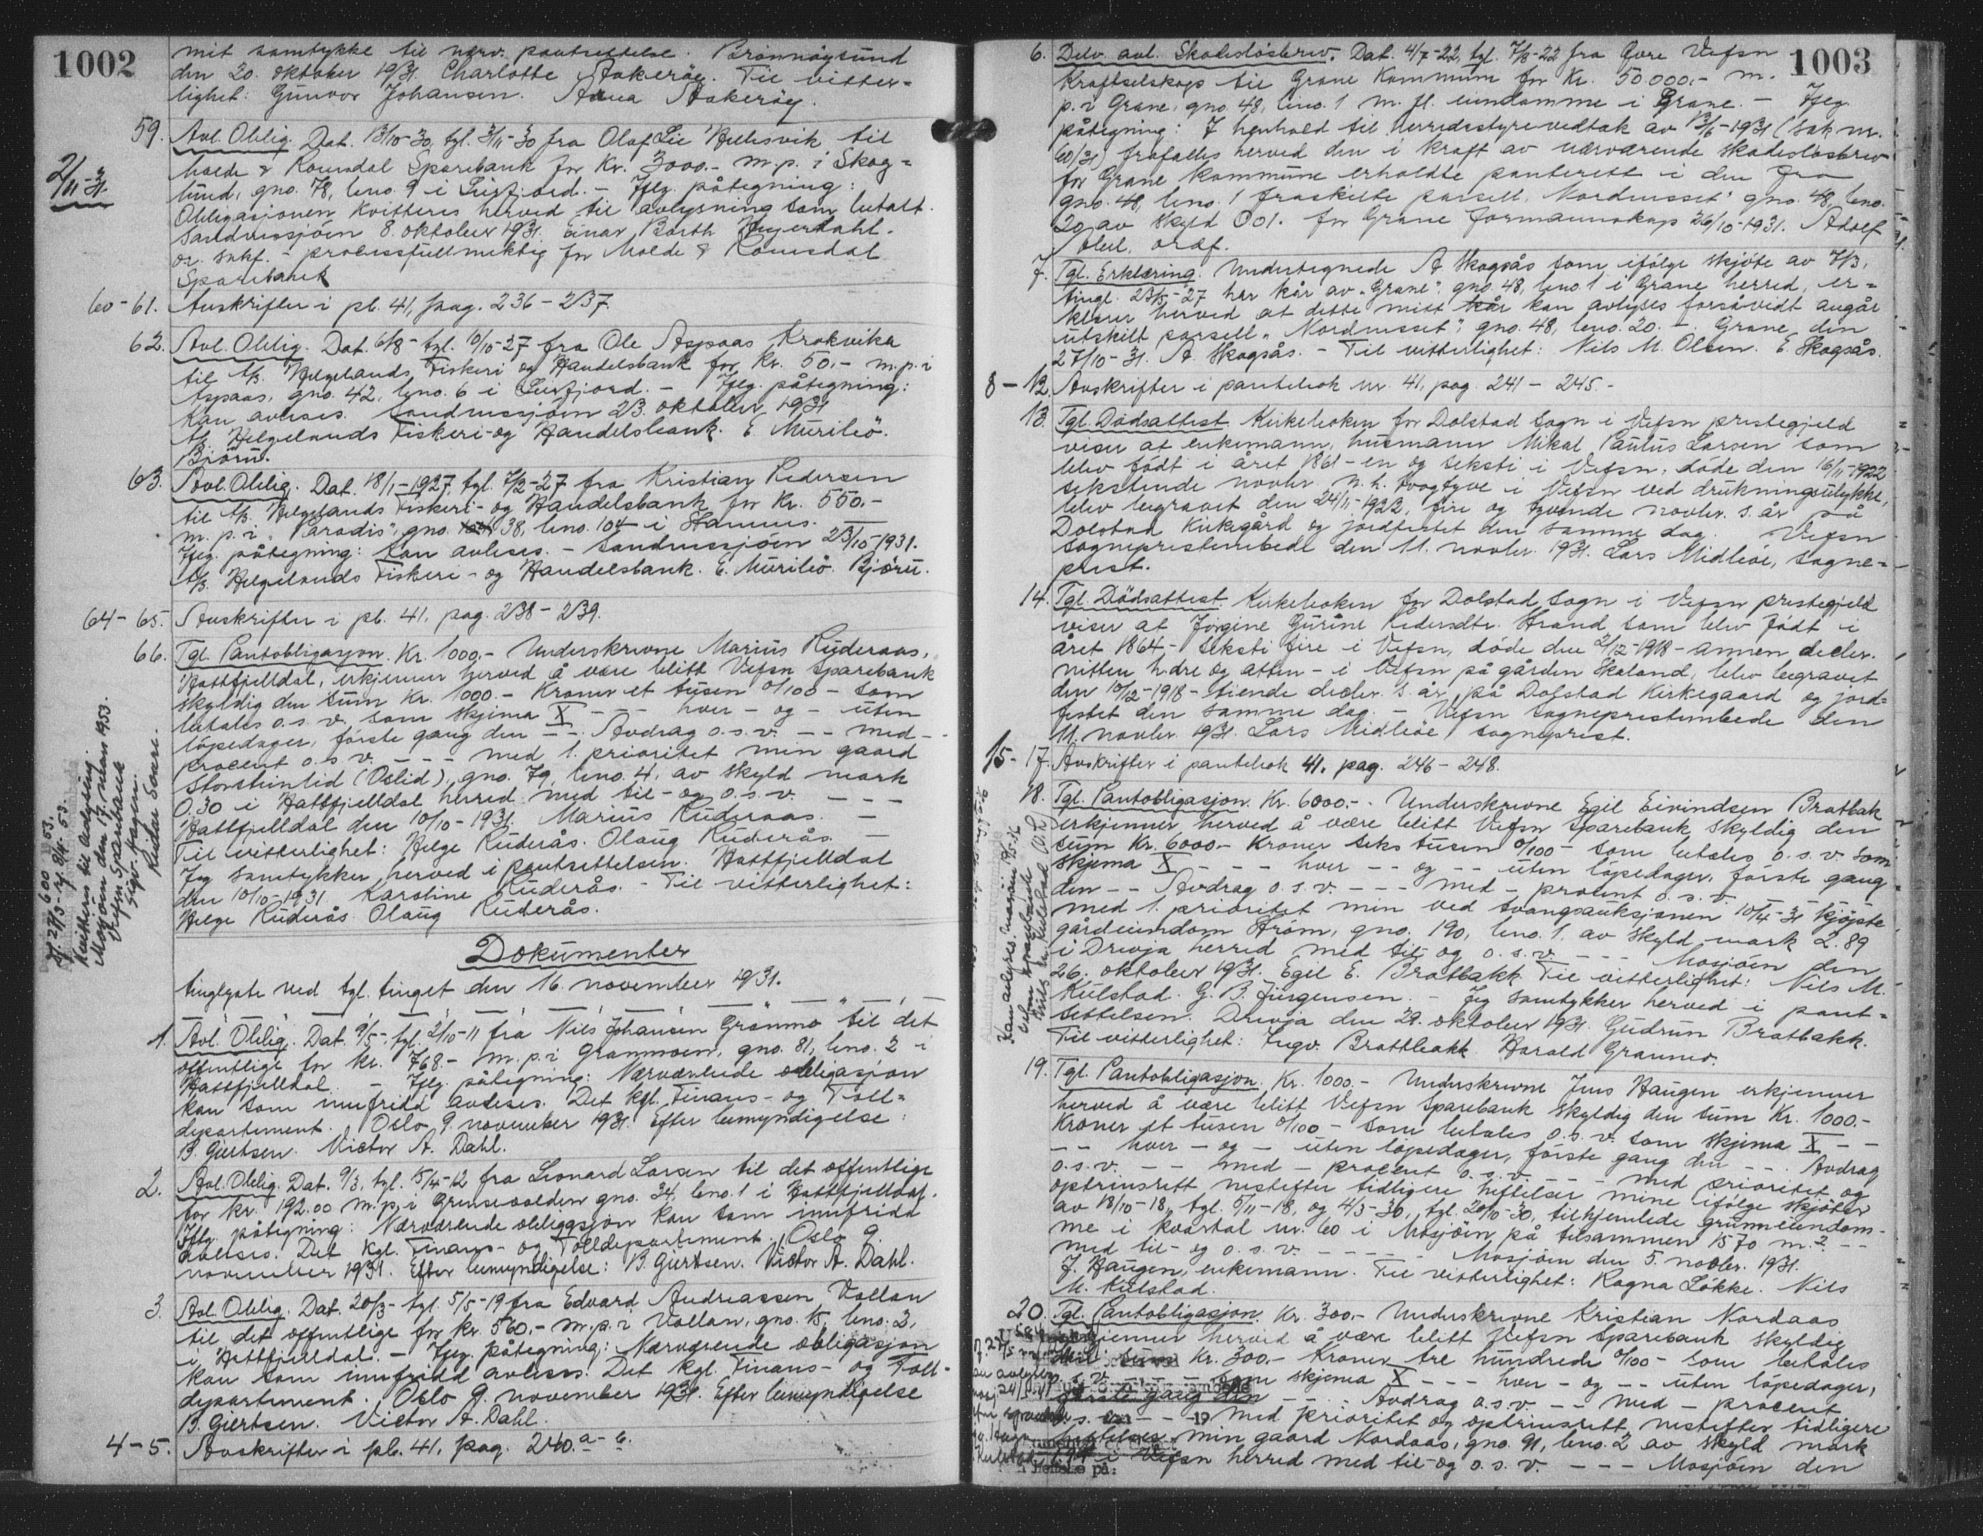 1002
mit samtykke til nærv. pantsettelse. Brønnøysund
den 20. oktober 1931. Charlotte Aakerøy. Til vitter=
lighet: Gunvor Johansen. Anna Aakerøy.
59. Avl. Oblig. Dat. 13/10-30, tgl. 3/11-30 fra Olaf Lie til
2/11-31.
Molde & Romsdal Sparebank for Kr. 3000.- m.p. i Skog=
lund, gno. 78, bno. 9 i Leirfjord. - Iflg. påtegning:
Obligasjonen kvitteres herved til avlysning som betalt.
Sandnessjøen 8. oktober 1931. Einar Barth Heyerdahl.
or. sakf. - processfullmektig for Molde & Romsdal
Sparebank
60-61. Avskrifter i pb. 41, pag. 236-237.
62. Avl. Oblig. Dat. 6/8- tgl. 10/10-27 fra Ole Aspaas Krokvika
til A/S. Helgelands Fiskeri og Handelsbank for Kr. 50.- m.p. i
Aspaas, gno. 42, bno. 6 i Leirfjord. - Iflg. påtegning:
Kan avleses. Sandnessjøen 23. oktober 1931
A/S. Helgelands Fiskeri- og Handelsbank. E. Muribø.
Bjøru.
63. Avl. Oblig. Dat. 18/1-1927, tgl. 7/2-27 fra Kristian Pedersen
til A/S. Helgelands Fiskeri- og Handelsbank for Kr. 550.-
m.p. i "Paradis", gno. 38, bno. 104 i Stamnes.
Iflg. påtegning: Kan avleses. - Sandnessjøen 23/10-1931.
A/S. Helgelands Fiskeri- og Handelsbank. E. Muribø. Bjøru.
64-65. Avskrifter i pb. 41, pag. 238-239.
66. Tgl. Pantobligasjon. Kr. 1000.- Underskrevne Marius Ruderaas,
Hattfjelldal, erkjenner herved å være blitt Vefsn Sparebank
skyldig den sum Kr. 1000.- Kroner et tusen 0/100 - som
betales o.s.v. som skjema X - - - hver - og - uten
løpedager, første gang den - - . Avdrag o.s.v. - - med - -
procent o.s.v. - - - med 1. prioritet min gaard
Storsteinlid (Oslid), gno. 79, bno. 4, av skyld mark
0.30 i Hattfjelldal herred med til- og o.s.v. - - -
Hattfjelldal den 10/10-1931. Marius Ruderaas. -
Til vitterlighet: Helge Ruderås. Olaug Ruderås. -
Jeg samtykker herved i pantsettelsen. Hattfjelldal
den 10/10-1931 Karoline Ruderås. - Til vitterlighet:
Helge Ruderås Olaug Ruderås.
Kvitteres til avlysning
Mosjøen den 17. mars 1953.
Vefsn Sparebank
Dokumenter
tinglyste ved tgl. tinget den 16. november 1931.
1. Avl. Oblig. Dat. 9/5- tgl. 2/10-11 fra Nils Johansen Grønmo til det
offentlige for kr. 768- m.p. i Grønmoen, gno. 81, bno. 2 i
Hattfjelldal. - Iflg. påtegning: Nærværende obligasjon
kan som innfridd avleses. Det kgl. Finans- og Toll=
departement. Oslo 9. november 1931. Efter bemyndigelse:
B. Giertsen. Victor A. Dahl.
2. Avl. Oblig. Dat. 9/3, tgl. 15/4-12 fra Leonard Larsen til det offentlige
for kr. 192.00 m.p. i gno. 34, bno. 1 i Hattfjelldal.
Iflg. påtegning: Nærværende obligasjon kan som innfridd
avleses. Det kgl. Finans- og Tolldepartement. Oslo 9.
november 1931. Efter bemyndigelse: B. Giertsen. Victor A. Dahl.
3. Avl. Oblig. Dat. 20/3- tgl. 5/5-19 fra Edvard Andreassen Vollan
til det offentlige for kr. 560.- m.p. i Vollan, gno. 15, bno. 2,
i Hattfjelldal. - Iflg. påtegning: Nærværende obligasjon
kan som innfridd avleses. Det kgl. Finans- og Toll-
departement. Oslo 9. november 1931. Efter bemyndigelse
B. Giertsen. Victor A. Dahl.
4-5. Avskrifter i pb. 41, pag. 240. a-b.
1003
6. Delv. avl. Skadesløsbrev. Dat. 4/7-22, tgl. 7/8-22 fra Øvre Vefsn
Kraftselskap til Grane Kommune for Kr. 50000.- m.
p. i Grane, gno. 48, bno. 1 m. fl. eiendomme i Grane. - Iflg.
påtegning: I henhold til herredsstyrevedtak av 13/6-1931 (sak nr.
60/31) frafalles herved den i kraft av nærværende skadesløsbrev
for Grane kommune erholdte panterett i den fra
gno. 48, bno. 1 fraskilte parsell "Nordnusset" gno. 48, bno.
20 av skyld 0.01. For Grane formannskap 26/10-1931. Adolf
ordf.
7. Tgl. Erklæring. Undertegnede A. Skogsås som ifølge skjøte av 7/3,
tingl. 23/5-27 har kår av "Grane", gno. 48, bno. 1 i Grane herred, er=
klærer herved at dette mitt kår kan avlyses forsåvidt angår
utskilt parsell "Nordnusset", gno. 48, bno. 20. - Grane, den
27/10-31. A. Skogsås. - Til vitterlighet: Nils M. Olsen. E. Skogsås.
8-12. Avskrifter i pantebok nr. 41, pag. 241-245.-
13. Tgl. Dødsattest. Kirkeboken for Dolstad sogn i Vefsn prestegjeld
viser at enkemann, husmann Mikal Paulus Larsen som
blev født i året 1861 - en og seksti i Vefsn, døde den 16/11-1922
sekstende novbr. n. h. toogtyve i Vefsn ved drukningsulykke,
blev begravet den 24/11-1922, fire og tyvende novbr. s. år på
Dolstad Kirkegård og jordfestet den samme dag. Vefsn
sogneprestembede den 11. novbr. 1931. Lars Midbøe, sogne=
prest.
14. Tgl. Dødsattest. Kirkeboken for Dolstad sogn i Vefsn prestegjeld
viser at Jørgine Gurine Pedersdtr. Strand som blev født i
året 1864 - seksti fire i Vefsn, døde den 2/12-1918 - annen decbr.
nitten h.dre og atten - i Vefsn på gården Skaland, blev begravet
den 10/12-1918 - tiende decbr. s. år, på Dolstad Kirkegaard og jord=
festet den samme dag. - Vefsn sogneprestembede den
11. novbr. 1931 Lars Midbøe, sogneprest.
15-17. Avskrifter i pantebok 41. pag. 246-248.
18. Tgl. Pantobligasjon. Kr. 6000.-. Underskrevne Egil Eivindsen Bratbak
erkjenner herved å være blitt Vefsn Sparebank skyldig den
sum Kr. 6000.- Kroner seks tusen 0/100 - som betales o.s.v. som
skjema X - - - hver - - og - - uten løpedager, første gang
den - - Avdrag o.s.v. - - - med - procent o.s.v. - - -
med 1. prioritet min ved tvangsauksjonen 10/4-31 kjøpte
gårdeiendom Strøm, gno. 190, bno. 1. av skyld mark 2.89
i Drevja herred med til og o.s.v. - - - Mosjøen den
26. oktober 1931. Egil E. Bratbakk. Til vitterlighet: Nils M.
Kulstad. G. B. Jürgensen. - Jeg samtykker herved i pant-
settelsen. Drevja den 29. oktober 1931. Gudrun Bratbakk.
Til vitterlighet: Ingv. Brattbakk. Harald Grannes.
19. Tgl. Pantobligasjon. Kr. 1000.- Underskrevne Jens Haugen erkjenner
herved å være blitt Vefsn Sparebank skyldig den sum Kr. 1000.-
Kroner et tusen 0/100 - som betales o.s.v. som skjema X - -
- - hver - og - uten løpedager, første gang den - - . Avdrag
o.s.v. - - med - procent o.s.v. - - - med prioritet og
optrinsrett nestefter tidligere heftelser mine ifølge skjøter
av 18/10-18, tgl. 5/11-18, og 4/3-30, tgl. 20/10-30, tilhjemlede grunneiendom-
me i kvartal nr. 60 i Mosjøen på tilsammen 1570 m.2 - -
med til- og o.s.v. - - - - - Mosjøen den 5. novbr. 1931.
J. Haugen, enkemann. Til vitterlighet: Ragna Løkke. Nils
M. Kulstad.
20. Tgl. Pantobligasjon. Kr. 300.- Underskrevne Kristian Nordaas
erkjenner herved å være blitt Vefsn Sparebank skyldig
den sum Kr. 300.- Kroner tre hundrede 0/100 - som betales
o.s.v. som skjema X - - - hver - og - - uten løpedager,
første gang den - - . Avdrag o.s.v. - - med - procent
o.s.v. - - - med prioritet og optrinsrett nestefter tidligere
heftelser min gaard Nordaas, gno. 91, bno. 2 av skyld mark
i Vefsn herred med til- og o.s.v. - - - Mosjøen den